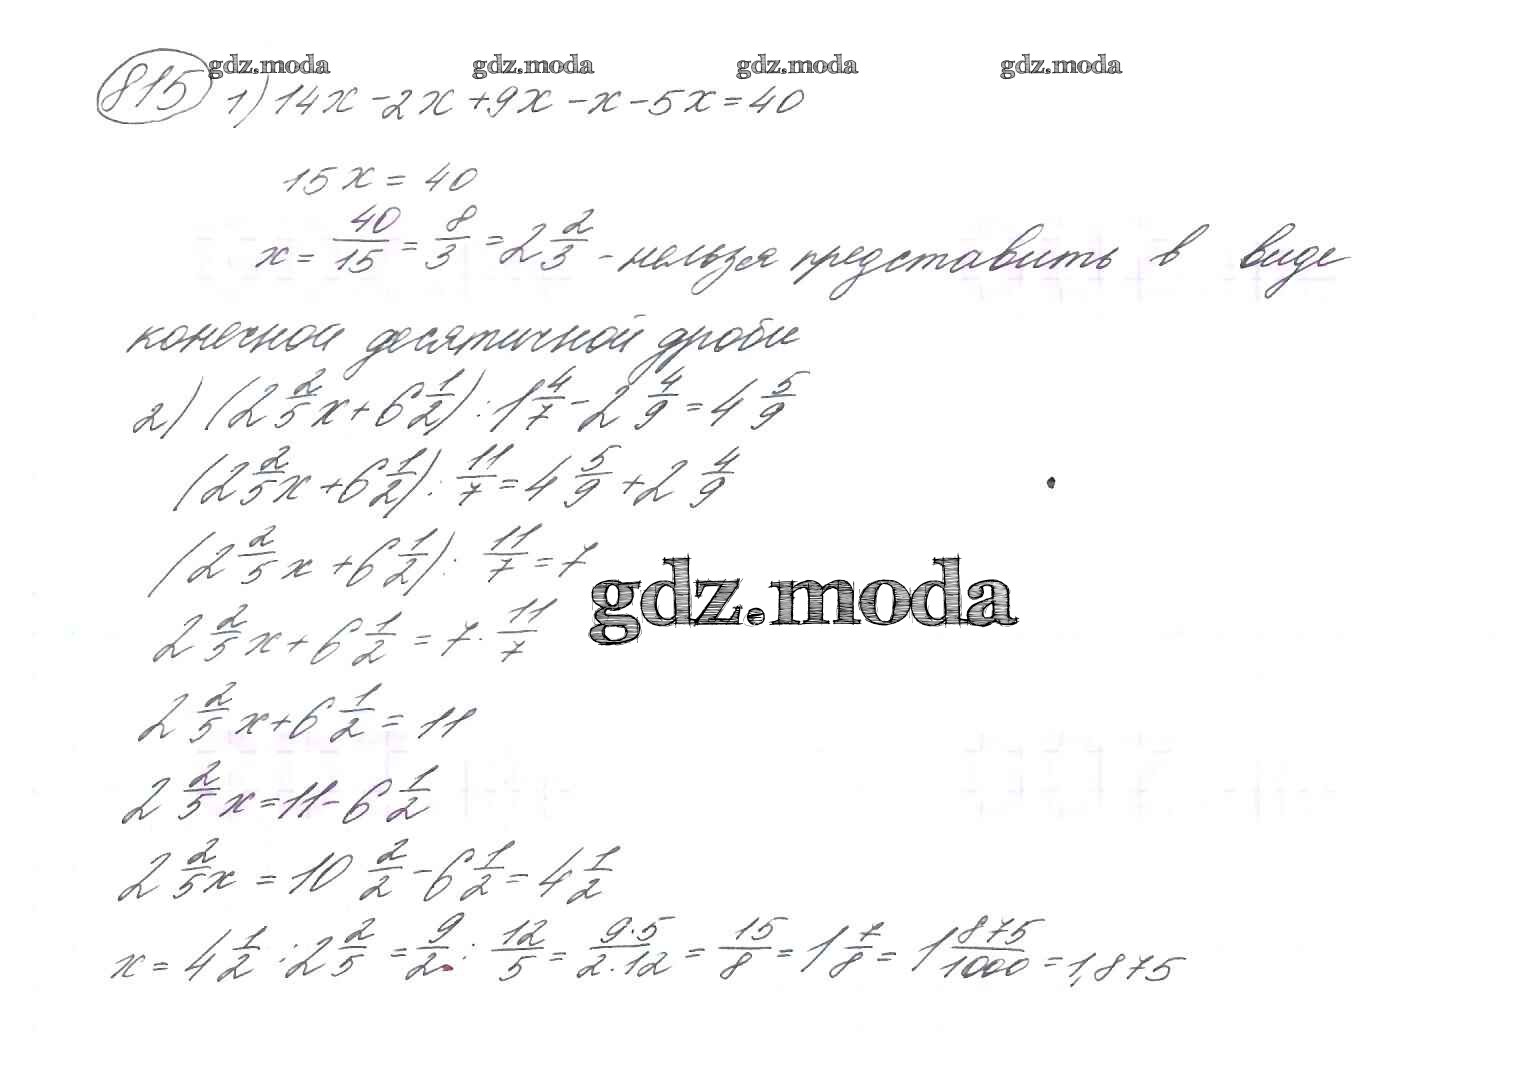 gdz.moda gdz.moda gdz.moda gdz.moda
815 1) 14x - 2x + 9x - x - 5x = 40
15x = 40
x = 40/15 = 8/3 = 2 2/3 - нельзя представить в виде
конечной десятичной дроби
2) (2 2/5 x + 6 1/2) : 1 4/7 - 2 4/9 = 4 5/9
(2 2/5 x + 6 1/2) : 11/7 = 4 5/9 + 2 4/9
(2 2/5 x + 6 1/2) : 11/7 = 7
gdz.moda
2 2/5 x + 6 1/2 = 7 · 11/7
2 2/5 x + 6 1/2 = 11
2 2/5 x = 11 - 6 1/2
2 2/5 x = 10 2/2 - 6 1/2 = 4 1/2
x = 4 1/2 : 2 2/5 = 9/2 : 12/5 = 9·5/2·12 = 15/8 = 1 7/8 = 1 875/1000 = 1,875